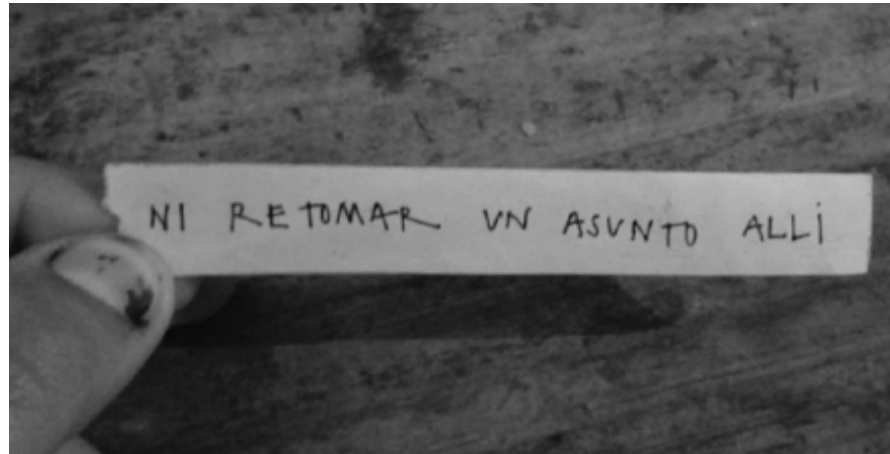 NI RETOMAR UN ASUNTO ALLÍ